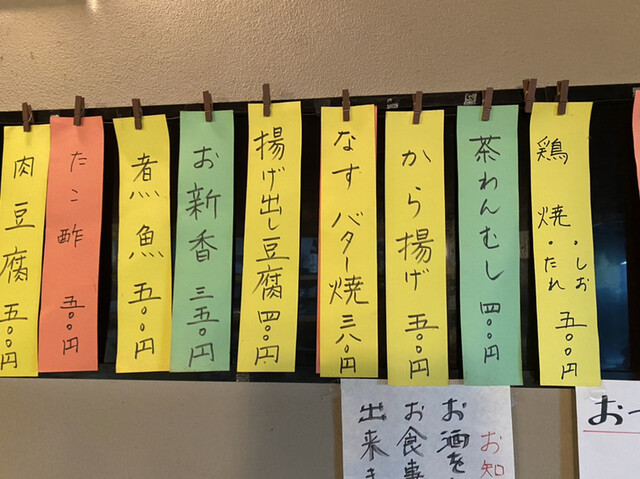 鶏焼 ・しお ・たれ 五〇〇円
茶わんむし 四〇〇円
から揚げ 五〇〇円
なすバター焼 三八〇円
揚げ出し豆腐 四〇〇円
お新香 三五〇円
煮魚 五〇〇円
たこ酢 五〇〇円
肉豆腐 五〇〇円
お知
お酒を
お食事
出来ま
お